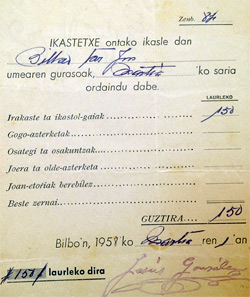 Zenb. 84
IKASTETXE ontako ikasle dan
Bilbao
umearen gurasoak, 'ko saria
ordaindu dabe.
LAURLEKO
Irakaste ta ikastol-gaiak 150
Gogo-azterketak
Osategi ta osakuntzak
Joera ta olde-azterketa
Joan-etoriak berebilez
Beste zernai
GUZTIRA 150
Bilbo'n, 195 'ko ren 1'an
# 150 # laurleko dira
Jesús González